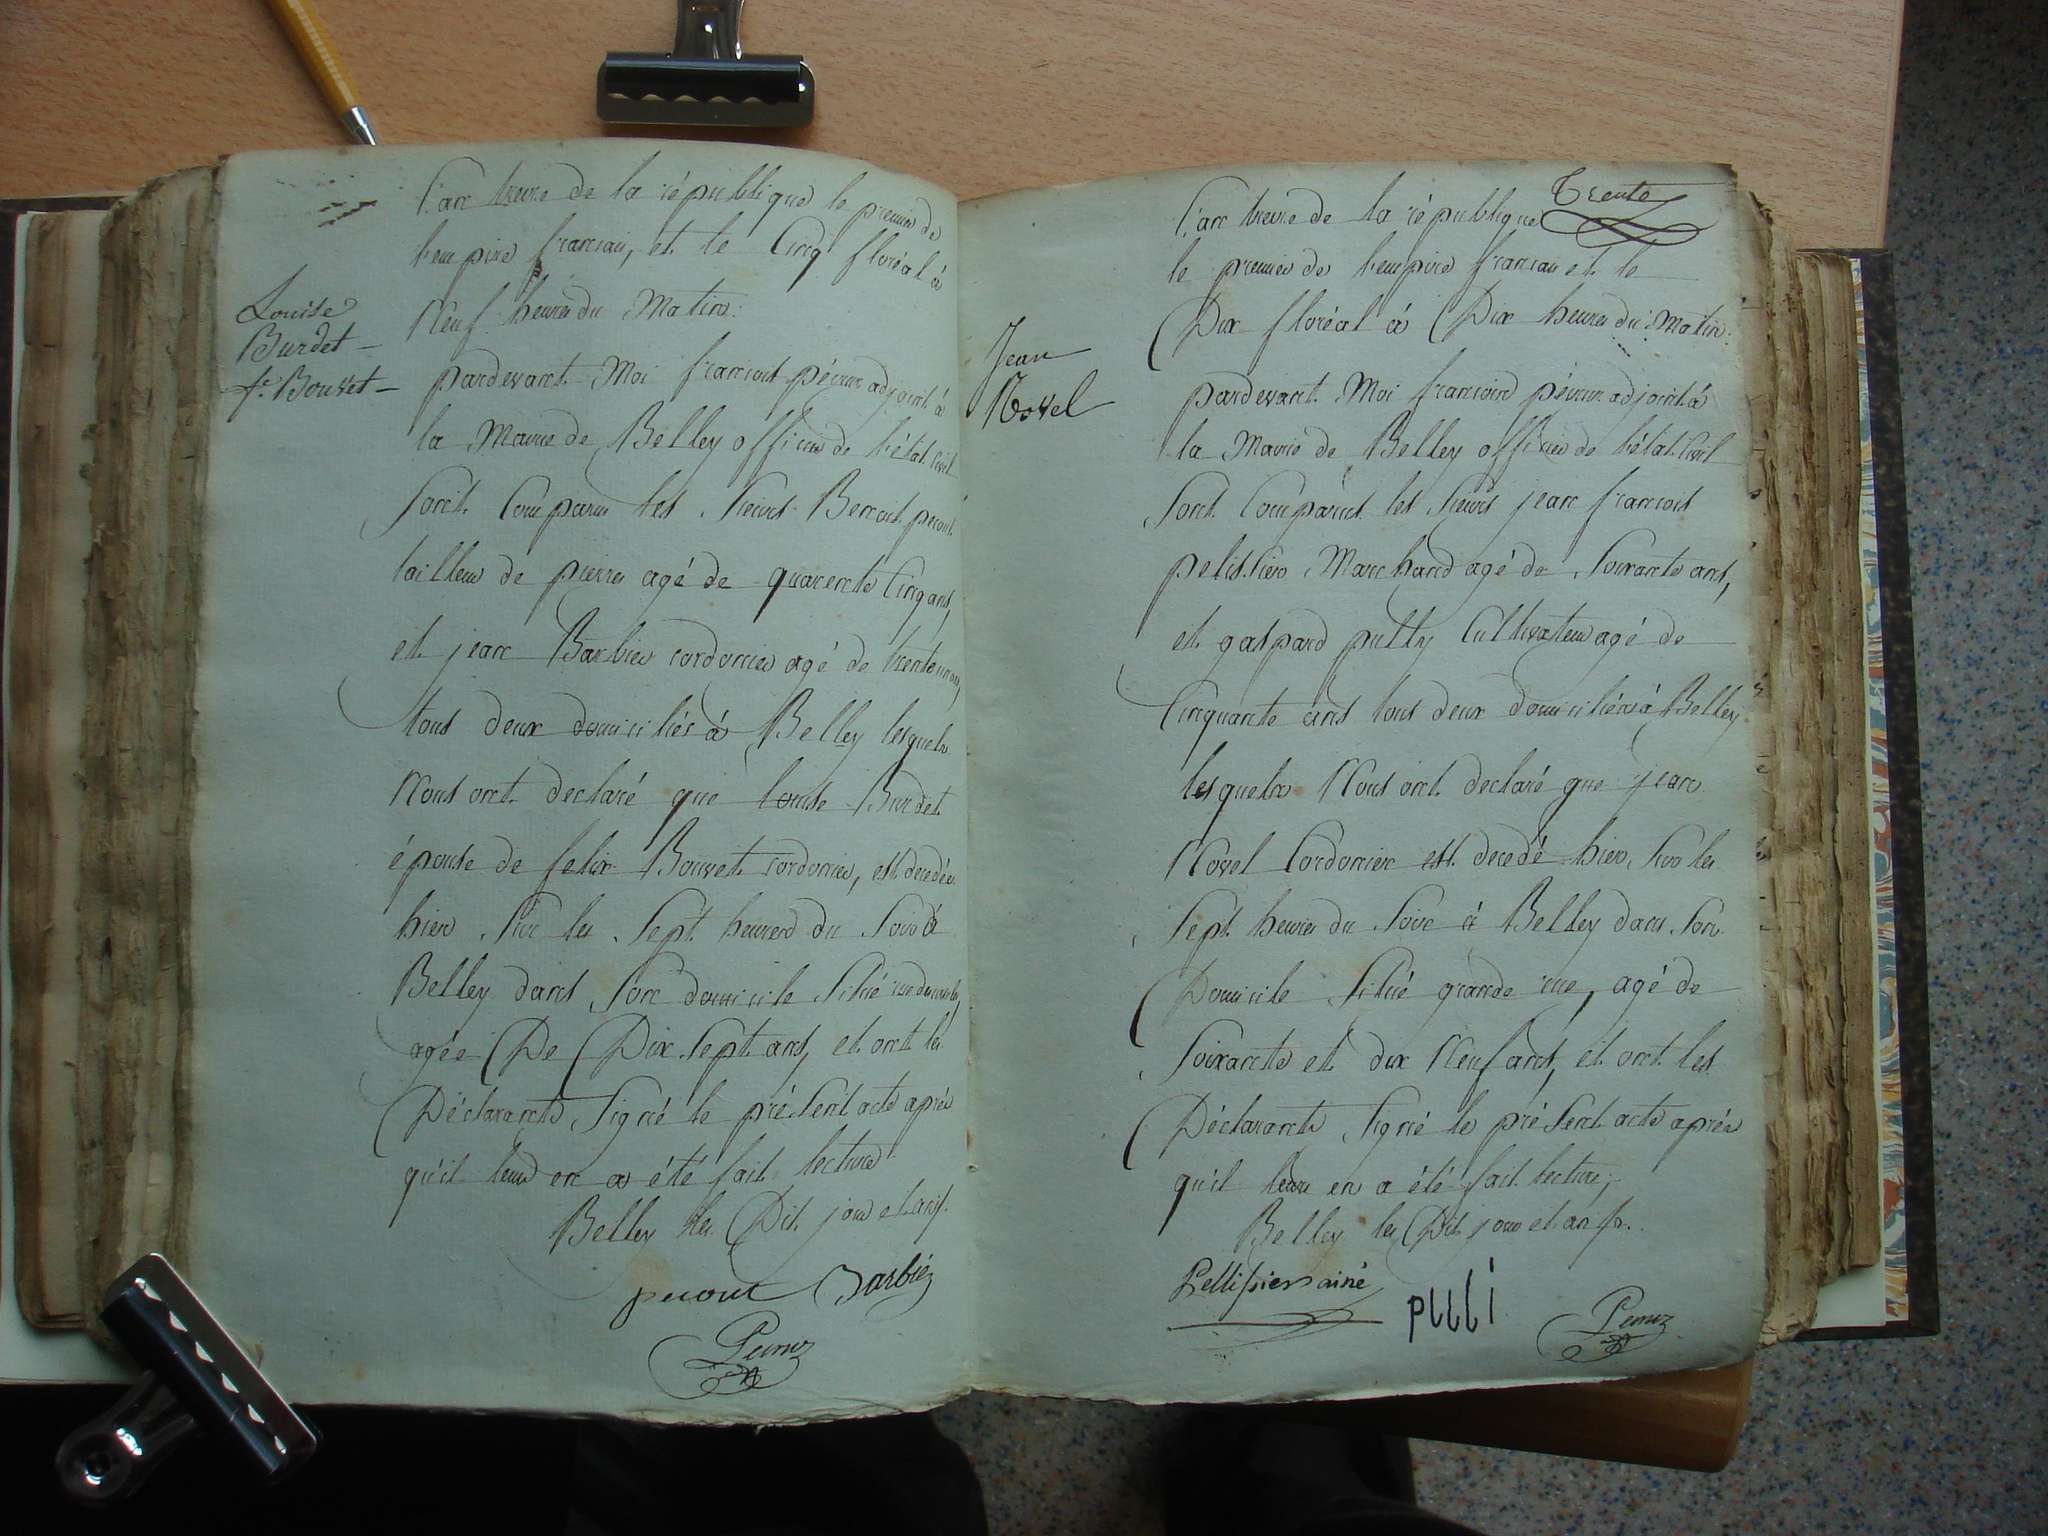 Louise
Burdet
fe. Bouvet
l'an treize de la république le premier de
l'empire francais, et le Cinq floréal à
Neuf heures du Matin:
pardevant Moi francois péruz adjoint à
la Mairie de Belley officier de l'état Civil
Sont Comparu les Sieurs Benoit pecout
tailleur de pierres agé de quarente Cinq ans,
et jean Barbier cordonnier agé de
tous deux domiciliés à Belley lesquels
Nous ont declaré que Louise Burdet
épouse de felix Bouvet cordonier, est decedée
hier Sur les Sept heures du Soir à
Belley dans Son domicile Situé
agée De Dix Sept ans, et ont les
Déclarants Signé le présent acte aprés
qu'il leur en a été fait lecture
Belley les Dit jour et an f.
pecout Barbier
Peruz
Trente
Jean
Novel
l'an treize de la république
le premier de l'empire francais et le
Dix floréal à Dix heures du Matin:
pardevant Moi francois péruz adjoint à
la Mairie de Belley officier de l'état Civil
Sont Comparus les Sieurs jean francois
pelissier Marchand agé de Soixante ans,
et gaspard pully Cultivateur agé de
Cinquante ans tous deux domiciliés à Belley
lesquels Nous ont declaré que jean
Novel Cordonier est decedé hier Sur les
Sept heures du Soir à Belley dans Son
Domicile Situé grande rue, agé de
Soixante et dix Neuf ans, et ont les
Déclarants Signé le présent acte aprés
qu'il leur en a été fait lecture,
Belley les Dit jour et an f.
Pellissier ainé
pulli
Peruz